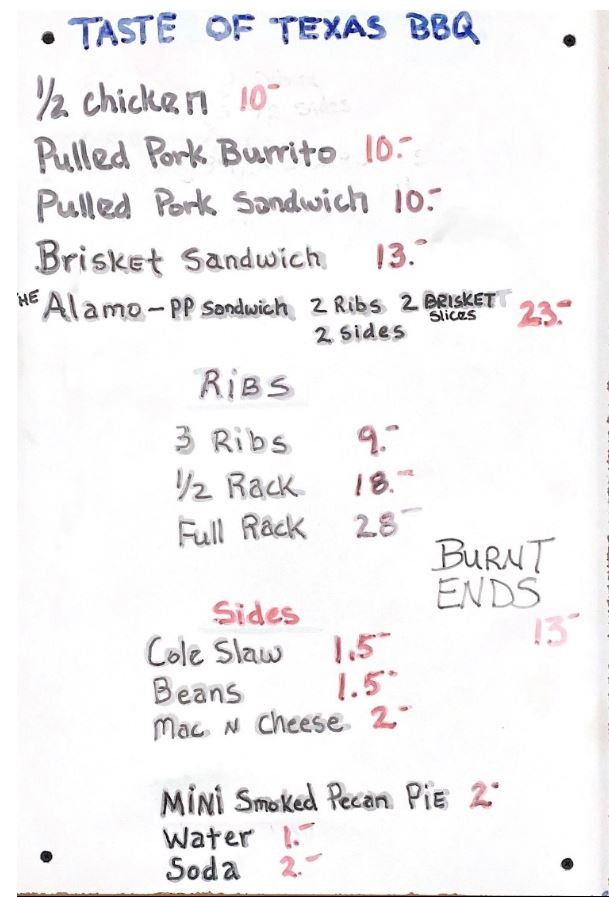 TASTE OF TEXAS BBQ
1/2 chicken 10-
Pulled Pork Burrito 10.-
Pulled Pork Sandwich 10.-
Brisket Sandwich 13.-
HE Alamo - PP Sandwich 2 Ribs 2 BRISKET Slices 23.-
2 Sides
RiBS
3 Ribs 9.-
1/2 Rack 18.-
Full Rack 28-
BURNT
ENDS
13-
Sides
Cole Slaw 1.5-
Beans 1.5-
Mac N Cheese 2-
MiNi Smoked Pecan PiE 2-
Water 1.-
Soda 2.-